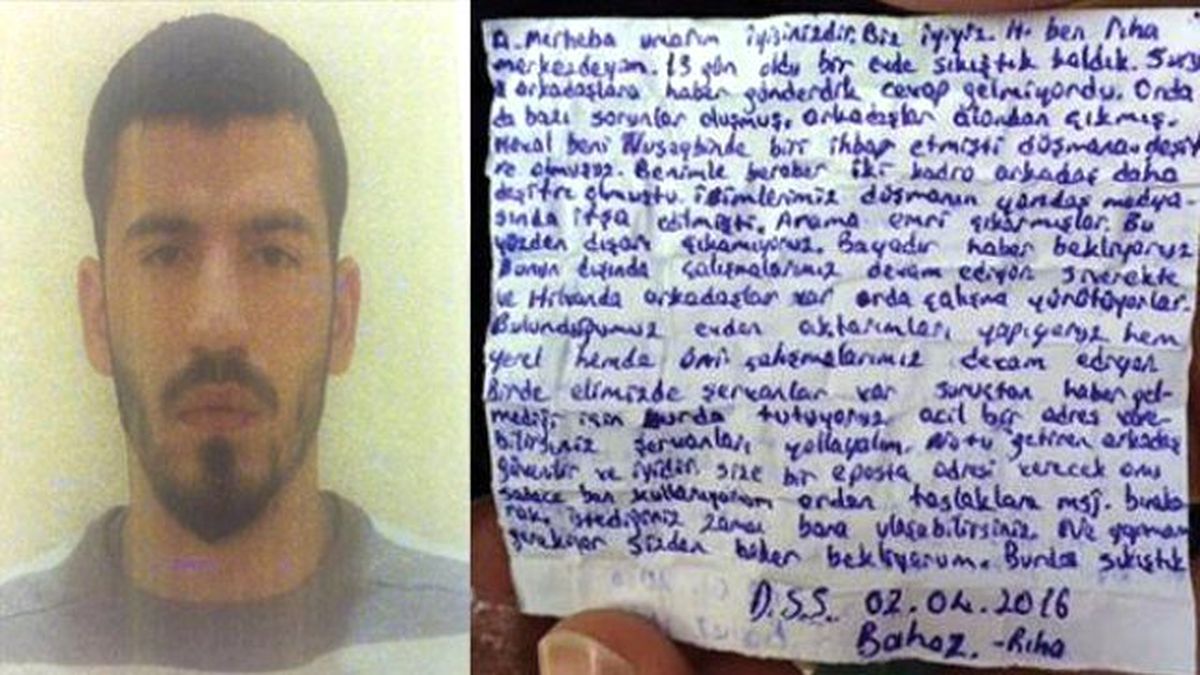 D. Merheba umarım iyisinizdir. Biz iyiyiz. H. ben Riha
merkezdeyım. 13 gün oldu bir evde sıkıştık kaldık. Suruç
arkadaşlara haber gönderdik cevap gelmiyordu. Onda
da bazı sorunlar oluşmuş, arkadaşlar alandan çıkmış.
Heval beni Nusaybinde biri ihbar etmişti düşmana. deşif
re olmuşuz. Benimle beraber iki kadro arkadaş daha
deşifre olmuştu. isimlerimiz düşmanın yandaş medya-
sında ifşa edilmişti. Arama emri çıkarmışlar. Bu
yüzden dışarı çıkamıyoruz. Bayadır haber bekliyoruz
Bunun dışında çalışmalarımız devam ediyor. Siverekte
ve Hilvanda arkadaşlar var orda çalışma yürütüyorlar.
Bulunduğumuz evden aktarımları yapıyoruz hem
yerel hemde çalışmalarımız devam ediyor
Birde elimizde şervanlar var suruçtan haber gel-
mediği için burda tutuyoruz acil bir adres vere-
bilirseniz şervanları yollayalım. Notu getiren arkadaş
güvenilir ve iyidir. size bir eposta adresi verecek onu
sadece ben kullanıyorum ordan taslaklara msj. bıraka
rak, istediğiniz zaman bana ulaşabilirsiniz. Ne yapmam
gerekiyor sizden haber bekliyorum. Burda sıkıştık
D.S.S. 02.04.2016
Bahoz. -Riha